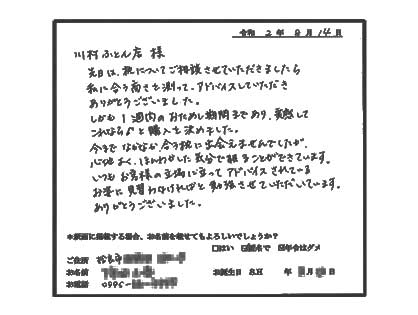 令和 2 年 9 月 14 日
川村ふとん店 様
先日は、枕についてご相談させていただきましたら
私に合う高さを測って、アドバイスしていただき
ありがとうございました。
しかも1週間のおためし期間まであり、実感して
これなら！と購入を決めました。
今まで なかなか合う枕に出会えませんでしたが、
心地よく、ほんわかした気分で寝ることができています。
いつもお客様の立場に立ってアドバイスされている
お姿に見習わなければと勉強させていただいています。
ありがとうございました。
※紙面に掲載する場合、お名前を載せてもよろしいでしょうか？
□はい ☑匿名で □年令はダメ
ご住所
お名前 お誕生日 S.H 年 月 日
お電話 0995-